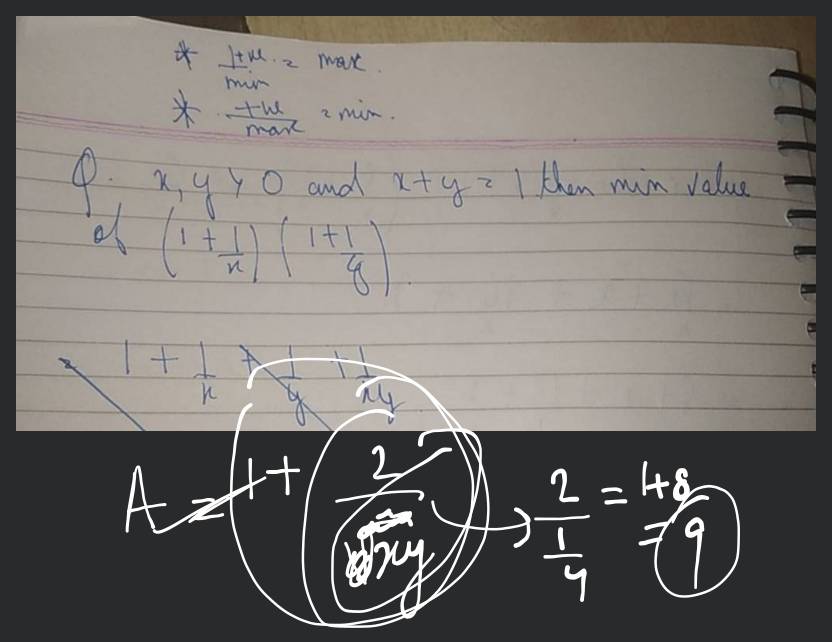 * 1+ve/min = max.
* +ve/max = min.
Q. x, y > 0 and x+y = 1 then min value
of (1 + 1/x) (1 + 1/y).
1 + 1/x + 1/y + 1/xy
A = 1 + 2/xy → 2/(1/4) = 1+8
= 9